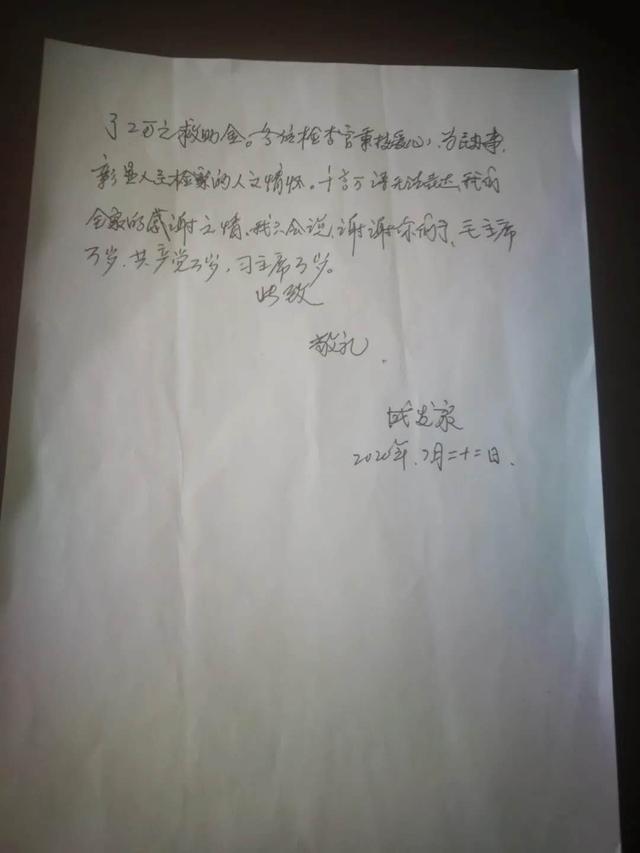 了2万元救助金。各位检查官秉持爱心,为民办事,
彰显人民检察的人文情怀。千言万语无法表达我们
全家的感谢之情,我只会说,谢谢你们了,毛主席
万岁.共产党万岁,习主席万岁。
此致
敬礼.
发家
2020年.7月二十二日.